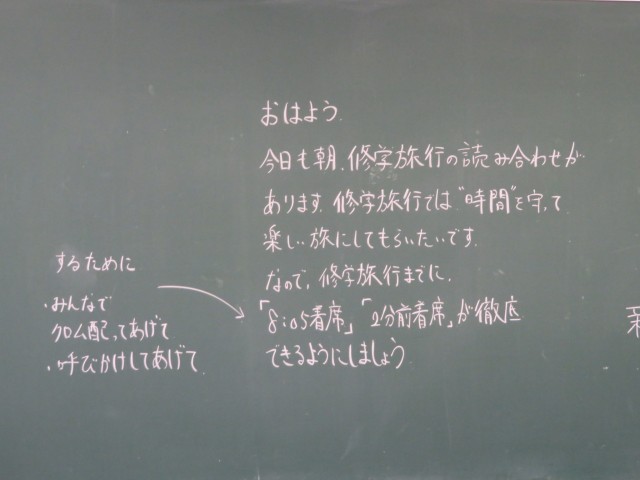 おはよう.
今日も朝、修学旅行の読み合わせが
あります。修学旅行では"時間"を守って
楽しい旅にしてもらいたいです。
なので、修学旅行までに、
「8:05着席」「2分前着席」が徹底
できるようにしましょう
するために
・みんなで
クロム配ってあげて
・呼びかけしてあげて